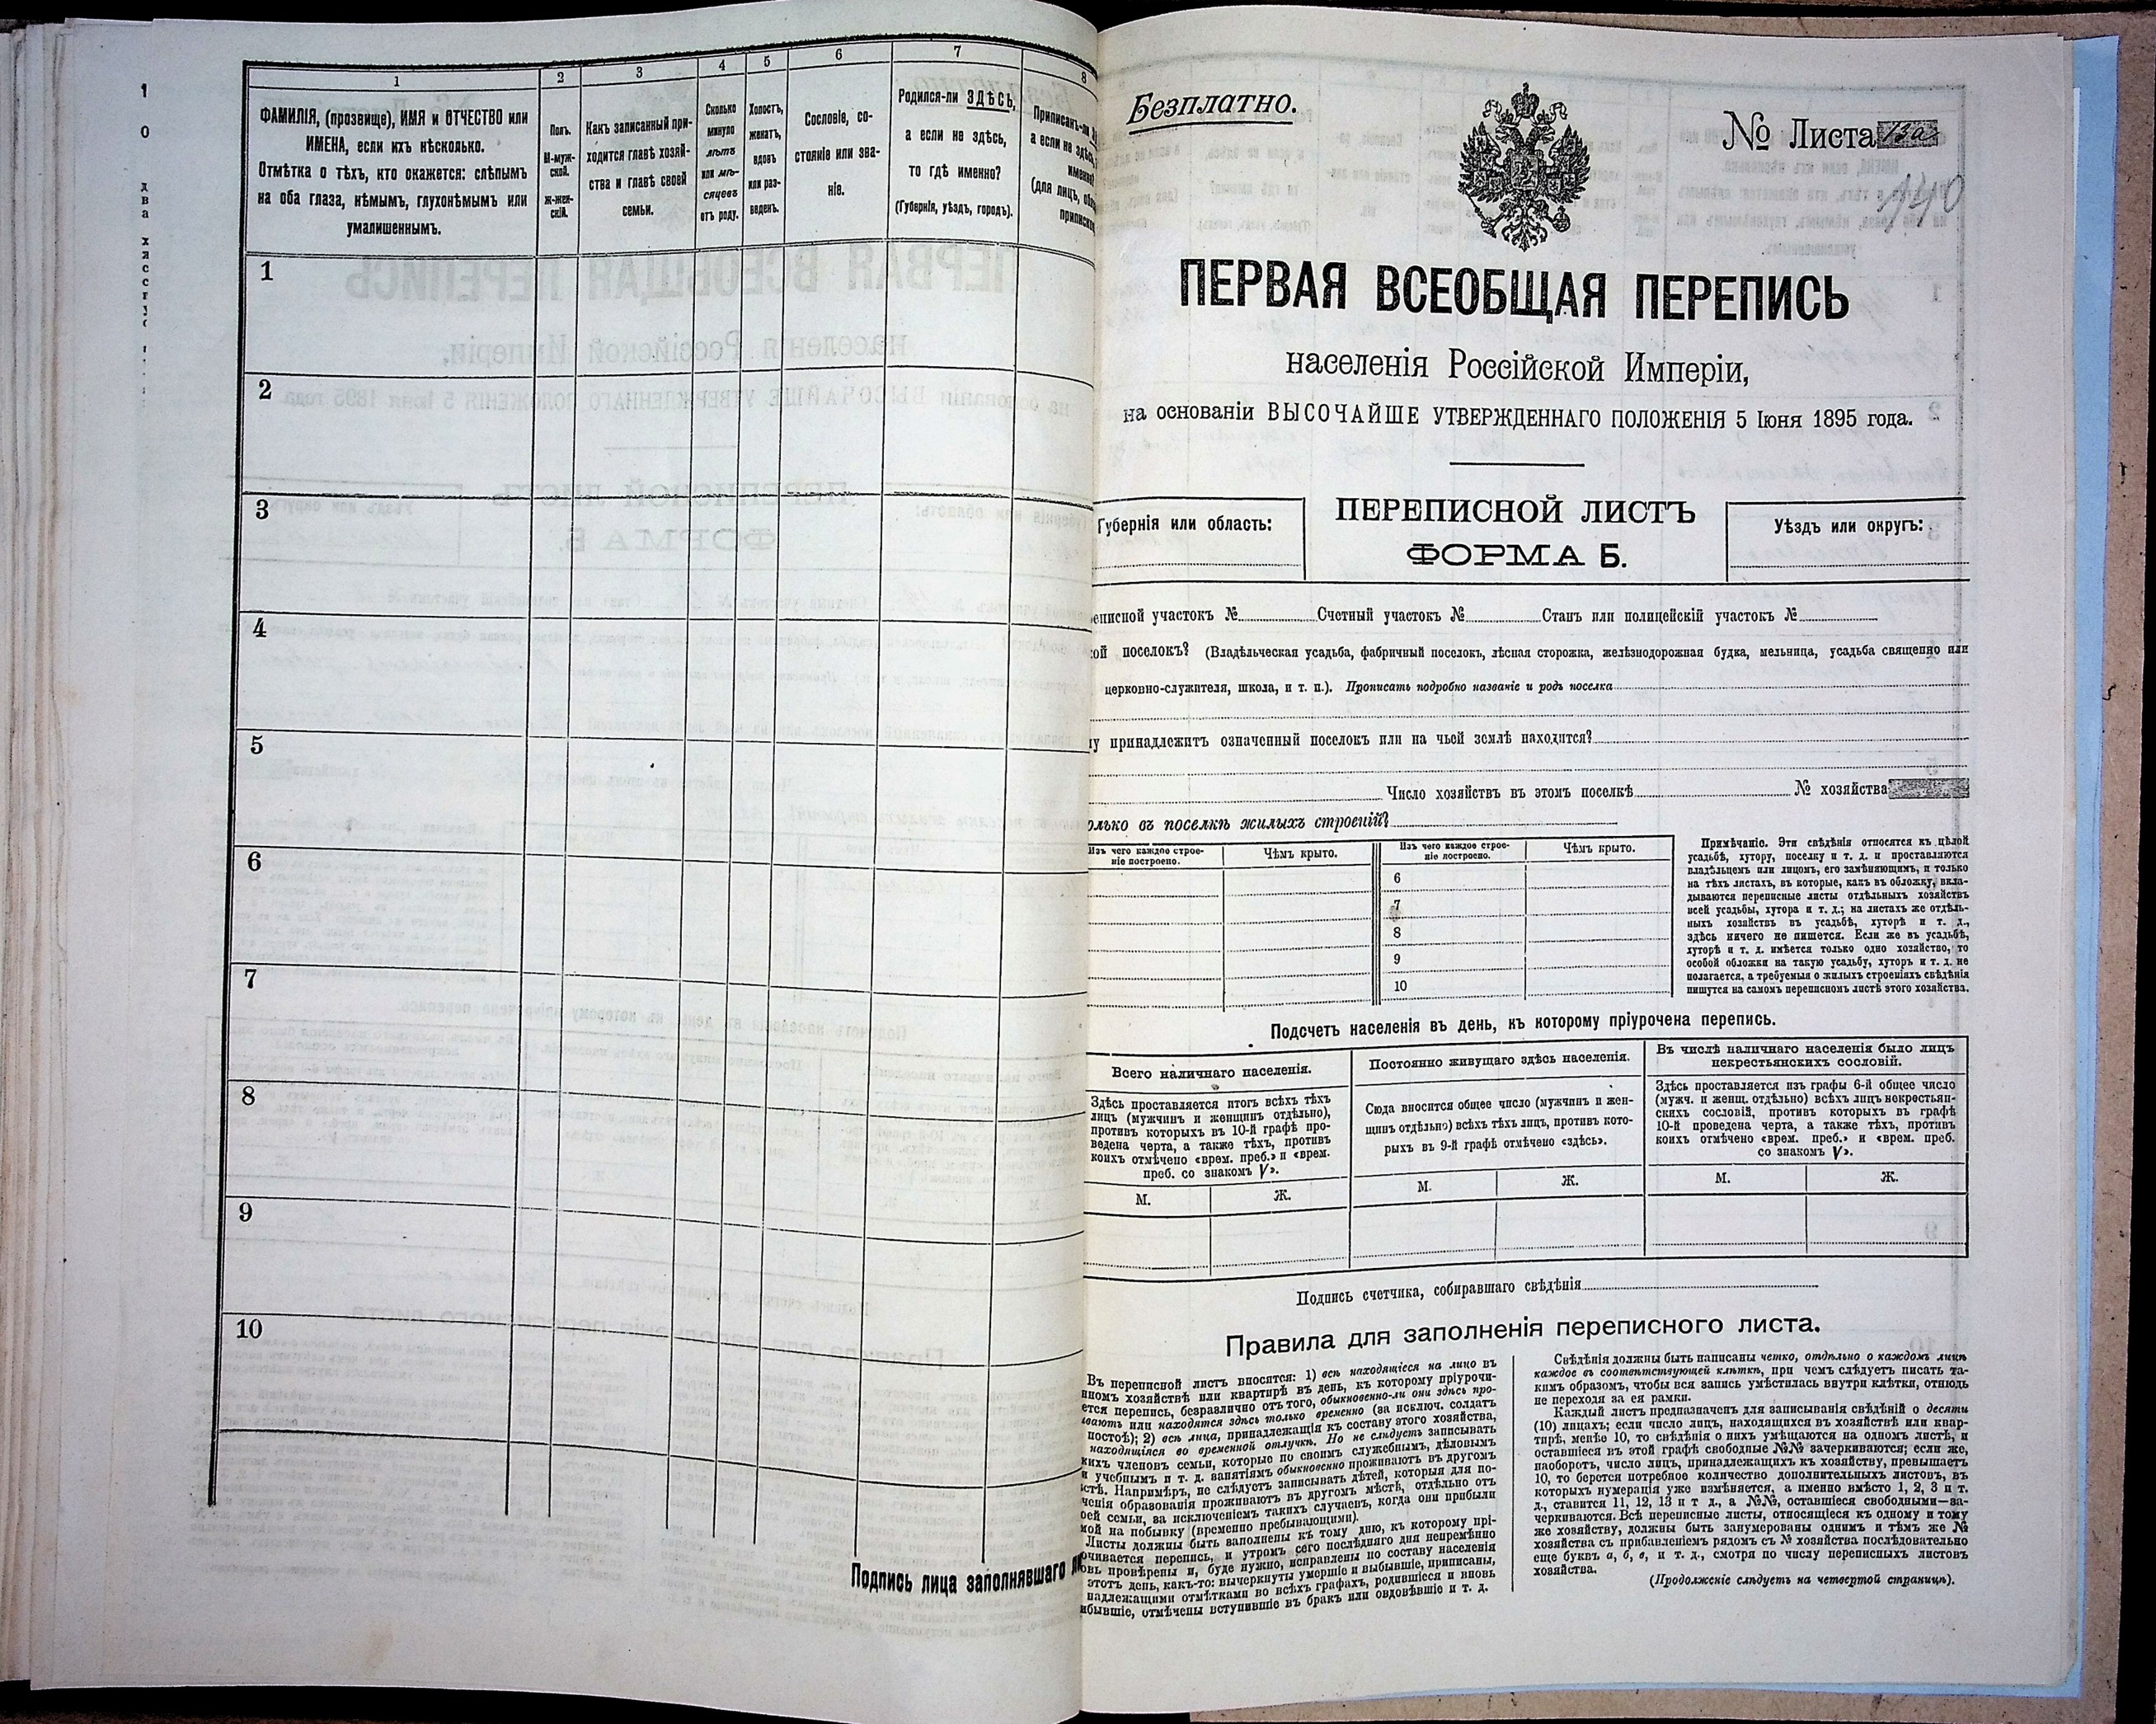 1
2
3
4
5
6
7
8
ФАМИЛІЯ, (прозвище), ИМЯ и ОТЧЕСТВО или
ИМЕНА, если ихъ нѣсколько.
Отмѣтка о тѣхъ, кто окажется: слѣпымъ
на оба глаза, нѣмымъ, глухонѣмымъ или
умалишеннымъ.
Полъ.
М-муж-
ской.
ж-жен-
скій.
Какъ записанный при-
ходится главѣ хозяй-
ства и главѣ своей
семьи.
Сколько
минуло
лѣтъ
или мѣ-
сяцевъ
отъ роду.
Холостъ,
женатъ,
вдовъ
или раз-
веденъ.
Сословіе, со-
стояніе или зва-
ніе.
Родился-ли ЗДѢСЬ,
а если не здѣсь,
то гдѣ именно?
(Губернія, уѣздъ, городъ).
Приписанъ-ли
а если не здѣсь,
(для лицъ,
1
2
3
4
5
6
7
8
9
10
Подпись лица заполнявшаго
Безплатно.
№ Листа 13а
140
ПЕРВАЯ ВСЕОБЩАЯ ПЕРЕПИСЬ
населенія Россійской Имперіи,
на основаніи ВЫСОЧАЙШЕ УТВЕРЖДЕННАГО ПОЛОЖЕНІЯ 5 Іюня 1895 года.
Губернія или область:
ПЕРЕПИСНОЙ ЛИСТЪ
ФОРМА Б.
Уѣздъ или округъ:
еписной участокъ № Счетный участокъ № Станъ или полицейскій участокъ №
ой поселокъ? (Владѣльческая усадьба, фабричный поселокъ, лѣсная сторожка, желѣзнодорожная будка, мельница, усадьба священно или
церковно-служителя, школа, и т. п.). Прописать подробно названіе и родъ поселка
у принадлежитъ означенный поселокъ или на чьей землѣ находится?
Число хозяйствъ въ этомъ поселкѣ № хозяйства
олько въ поселкѣ жилыхъ строеній?
Изъ чего каждое строе-
ніе построено.
Чѣмъ крыто.
Изъ чего каждое строе-
ніе построено.
Чѣмъ крыто.
6
7
8
9
10
Примѣчаніе. Эти свѣдѣнія относятся къ цѣлой
усадьбѣ, хутору, поселку и т. д. и проставляются
владѣльцемъ или лицомъ, его замѣняющимъ, и только
на тѣхъ листахъ, въ которые, какъ въ обложку, вкла-
дываются переписные листы отдѣльныхъ хозяйствъ
всей усадьбы, хутора и т. д.; на листахъ же отдѣль-
ныхъ хозяйствъ въ усадьбѣ, хуторѣ и т. д.,
здѣсь ничего не пишется. Если же въ усадьбѣ,
хуторѣ и т. д. имѣется только одно хозяйство, то
особой обложки на такую усадьбу, хуторъ и т. д. не
полагается, а требуемыя о жилыхъ строеніяхъ свѣдѣнія
пишутся на самомъ переписномъ листѣ этого хозяйства.
Подсчетъ населенія въ день, къ которому пріурочена перепись.
Всего наличнаго населенія.
Постоянно живущаго здѣсь населенія.
Въ числѣ наличнаго населенія было лицъ
некрестьянскихъ сословій.
Здѣсь проставляется итогъ всѣхъ тѣхъ
лицъ (мужчинъ и женщинъ отдѣльно),
противъ которыхъ въ 10-й графѣ про-
ведена черта, а также тѣхъ, противъ
коихъ отмѣчено «врем. преб.» и «врем.
преб. со знакомъ V».
Сюда вносится общее число (мужчинъ и жен-
щинъ отдѣльно) всѣхъ тѣхъ лицъ, противъ кото-
рыхъ въ 9-й графѣ отмѣчено «здѣсь».
Здѣсь проставляется изъ графы 6-й общее число
(мужч. и женщ. отдѣльно) всѣхъ лицъ некрестьян-
скихъ сословій, противъ которыхъ въ графѣ
10-й проведена черта, а также тѣхъ, противъ
коихъ отмѣчено «врем. преб.» и «врем. преб.
со знакомъ V».
М.
Ж.
М.
Ж.
М.
Ж.
Подпись счетчика, собиравшаго свѣдѣнія
Правила для заполненія переписного листа.
Въ переписной листъ вносятся: 1) всѣ находящіеся на лицо въ
нномъ хозяйствѣ или квартирѣ въ день, къ которому пріурочи-
ется перепись, безразлично отъ того, обыкновенно-ли они здѣсь про-
иваютъ или находятся здѣсь только временно (за исключ. солдатъ
постоѣ); 2) всѣ лица, принадлежащія къ составу этого хозяйства,
находящіяся во временной отлучкѣ. Но не слѣдуетъ записывать
кихъ членовъ семьи, которые по своимъ служебнымъ, дѣловымъ
и учебнымъ и т. д. занятіямъ обыкновенно проживаютъ въ другомъ
стѣ. Напримѣръ, не слѣдуетъ записывать дѣтей, которыя для по-
ченія образованія проживаютъ въ другомъ мѣстѣ, отдѣльно отъ
оей семьи, за исключеніемъ такихъ случаевъ, когда они прибыли
мой на побывку (временно пребывающими).
Листы должны быть заполнены къ тому дню, къ которому прі-
очивается перепись, и утромъ сего послѣдняго дня непремѣнно
овь провѣрены и, буде нужно, исправлены по составу населенія
этотъ день, какъ-то: вычеркнуты умершіе и выбывшіе, приписаны,
надлежащими отмѣтками во всѣхъ графахъ, родившіеся и вновь
ибывшіе, отмѣчены вступившіе въ бракъ или овдовѣвшіе и т. д.
Свѣдѣнія должны быть написаны четко, отдѣльно о каждомъ лицѣ
каждое въ соотвѣтствующей клѣткѣ, при чемъ слѣдуетъ писать та-
кимъ образомъ, чтобы вся запись умѣстилась внутри клѣтки, отнюдь
не переходя за ея рамки.
Каждый листъ предназначенъ для записыванія свѣдѣній о десяти
(10) лицахъ; если число лицъ, находящихся въ хозяйствѣ или квар-
тирѣ, менѣе 10, то свѣдѣнія о нихъ умѣщаются на одномъ листѣ, и
оставшіеся въ этой графѣ свободные №№ зачеркиваются; если же,
наоборотъ, число лицъ, принадлежащихъ къ хозяйству, превышаетъ
10, то берется потребное количество дополнительныхъ листовъ, въ
которыхъ нумерація уже измѣняется, а именно вмѣсто 1, 2, 3 и т.
д., ставится 11, 12, 13 и т д., а №№, оставшіеся свободными—за-
черкиваются. Всѣ переписные листы, относящіеся къ одному и тому
же хозяйству, должны быть занумерованы однимъ и тѣмъ же №
хозяйства съ прибавленіемъ рядомъ съ № хозяйства послѣдовательно
еще буквъ а, б, в, и т. д., смотря по числу переписныхъ листовъ
хозяйства.
(Продолженіе слѣдуетъ на четвертой страницѣ).